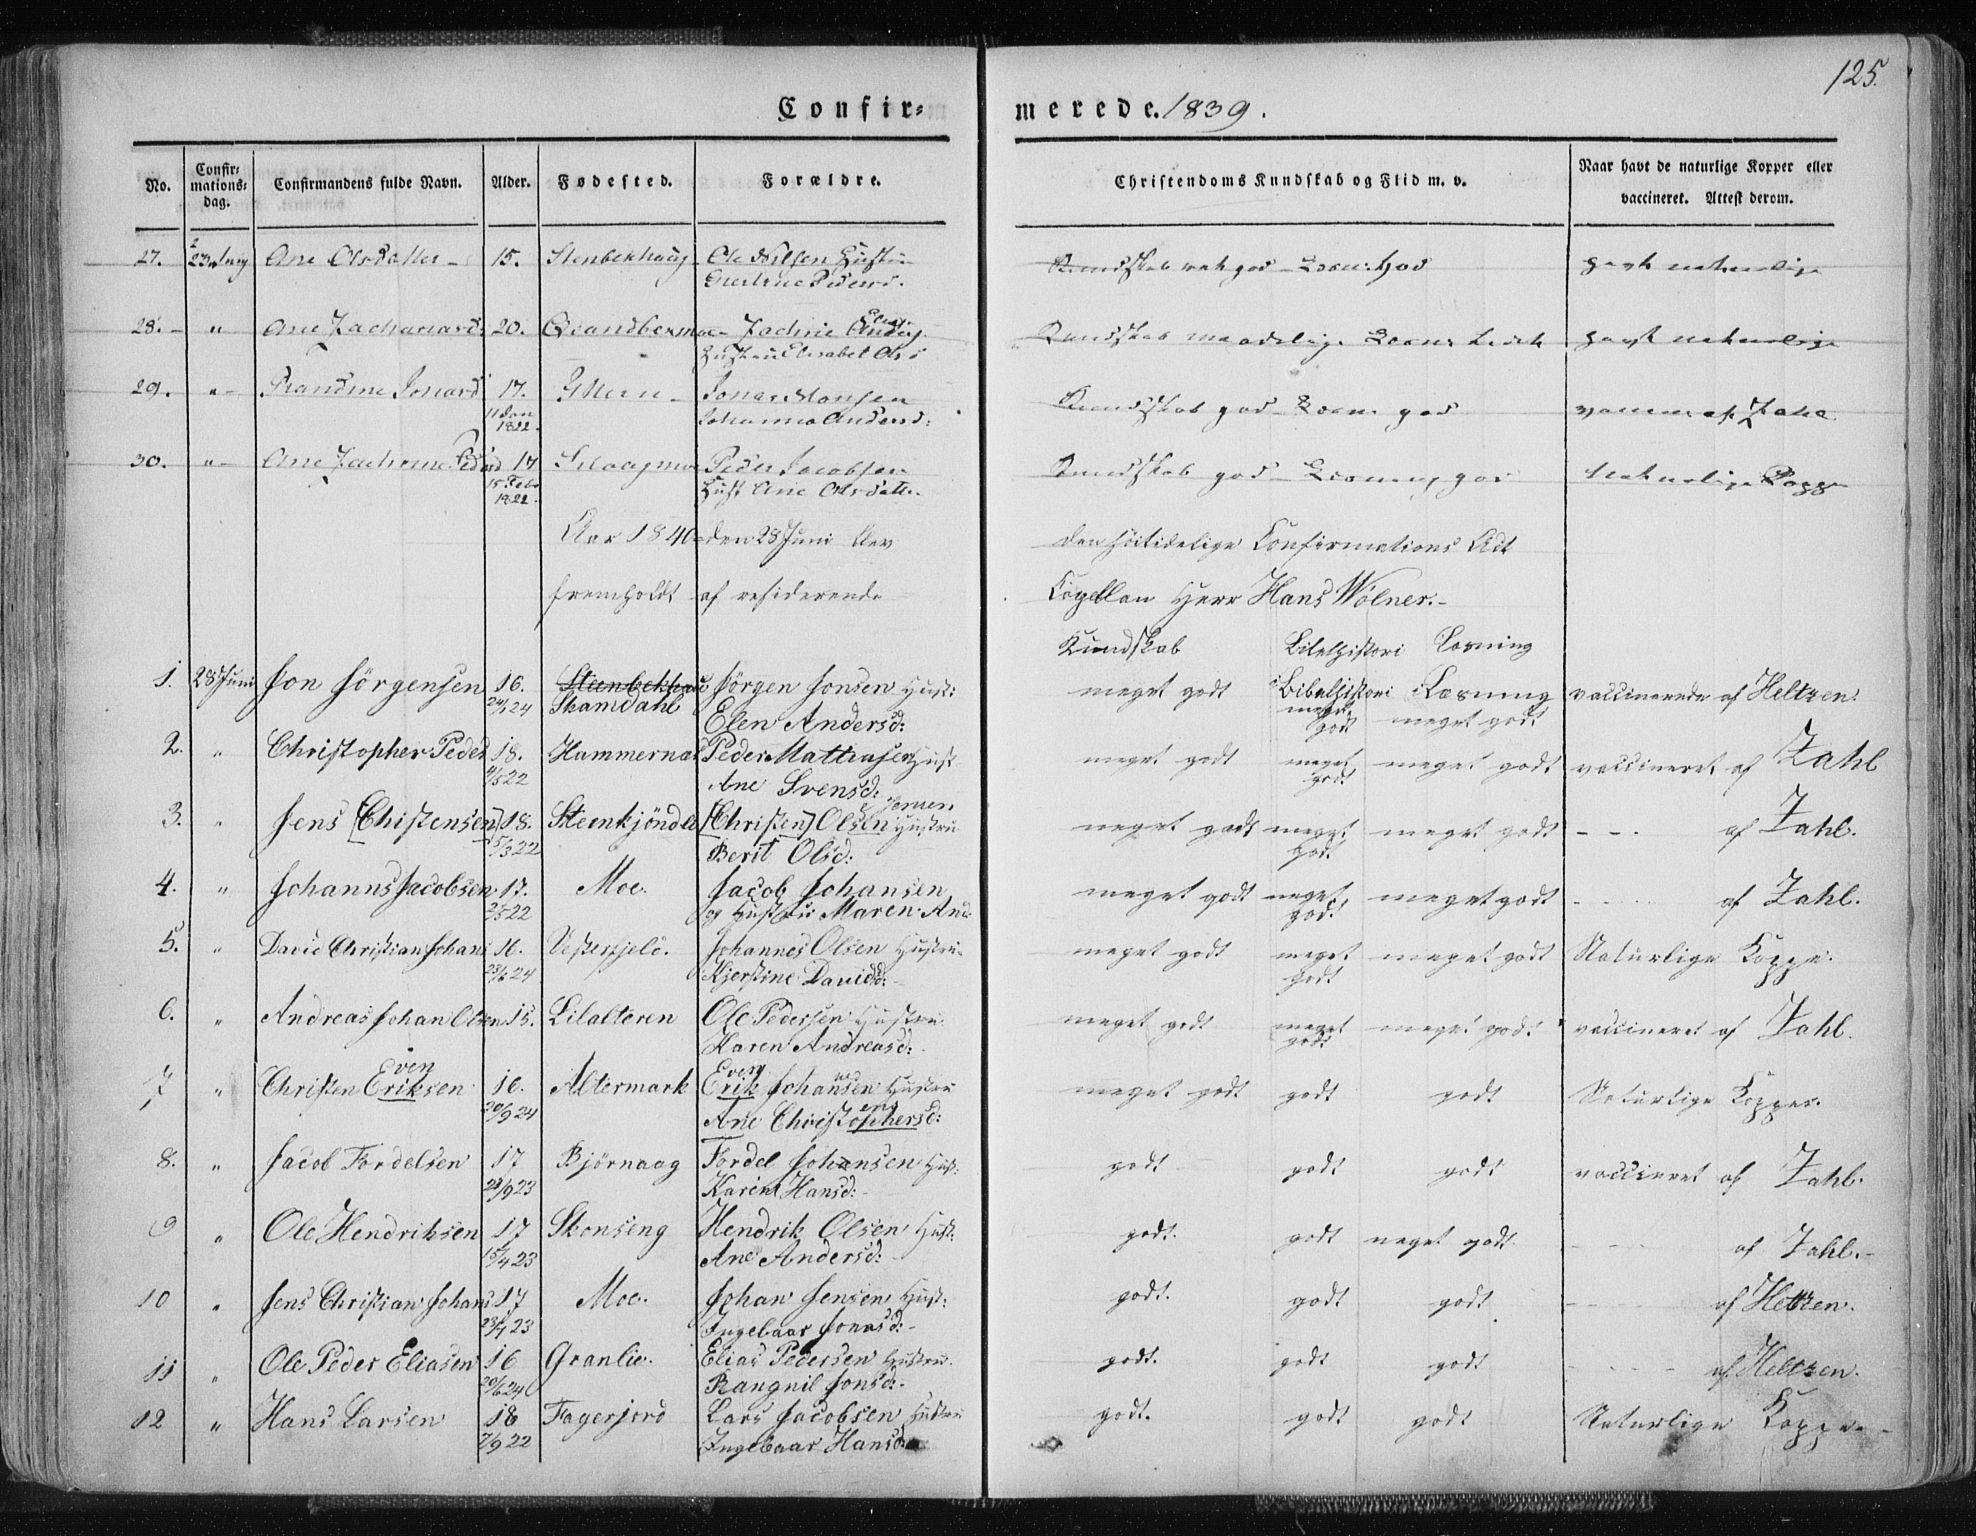 125.
Confir= merede. 1839.
No. Confir=mations=dag. Confirmandens fulde Navn. Alder. Fødested. Forældre. Christendoms Kundskab og Flid m. v. Naar havt de naturlige Kopper eller vaccineret. Attest derom.
27. 23 Aug Ane Olsdatter 15. Stenbekhaug Ole Nilsen Hustru Kundskab god Læsn: god havt naturlige
Pedersd.
28. " Ane Zachariasd: 20. Zachrie Kundskab maadelig havt naturlige
Hustru Elisabet Ols
29. " Jonasd 17. Ytteren Jonas Monsen Kundskab god Læsn god af Zahl
11 Jan 1822. Johanna Andersd:
30. " Ane Zachrine Peders 17 Peder Jacobsen Kundskab god Læsning god naturlige Kopper
15 Febr 1822. Hust Ane Olsdatter
Aar 1840 den 28 Juni blev den höitidelige Confirmations Act
fremholdt af residerende Capellan Herr Hans Wolner.
Kundskab Bibelhistori Læsning
1. 28 Juni Jon Jörgensen 16. Steenbekhau Jörgen Jonsen Hust: meget godt Bibelhistori Læsning vaccinerede af Heltzen.
24/1 24 Skamdahl Elen Andersd: meget godt meget godt
2. " Christopher Peders 18. Hammernæs Peder Mathiasen Hust meget godt meget godt meget godt vaccineret af Zahl
4/5 22 Ane Svensd:
3. " Jens [Christensen] 18. Steenkjöndle [Christen] Olsen Hustru meget godt meget godt meget godt - - - af Zahl.
15/3 22 Berit Olsd:
4. " Johannes Jacobsen 17. Moe. Jacob Johansen meget godt meget godt meget godt - - - af Zahl.
2/5 22 og Hustru Maren And:
5. " David Christian Johans 16. Vesterfjeld. Johannes Olsen Hustru meget godt meget godt meget godt Naturlige Kopper.
23/6 24 Kjerstine Davidsd:
6. " Andreas Johan Olsen 15. Lilalteren Ole Pedersen Hustru meget godt meget godt meget godt vaccineret af Zahl.
Karen Andreasd:
7 " Christen Eriksen Even 16. Altermark Erik Even Johansen Hustru meget godt godt godt Naturlige Kopper.
20/9 24 Ane Christophersd: ens
8. " Jacob Fordelsen 17 Björnaag Fordel Johansen Hust: godt godt godt vaccineret af Zahl.
28/9 23 Karen Hansd:
9 " Ole Hendriksen 17 Skonseng Hendrik Olsen Hust: godt. godt meget godt. - - - af Zahl.
15/4 23 Ane Andersd:
10 " Jens Christian Johans 17 Moe. Johan Jensen Hust: godt. godt godt - - - af Heltzen.
23/4 23 Ingebaar Jonasd:
11 " Ole Peder Eliasen 16 Granlie. Elias Pedersen Hustru. godt. godt godt - - - af Heltzen.
20/6 24 Rangnil Jonsd:
12 " Hans Larsen 18 Fagerjord Lars Jacobsen Hustru godt. godt godt Naturlige Kopper
7/9 22 Ingebaar Hansd: